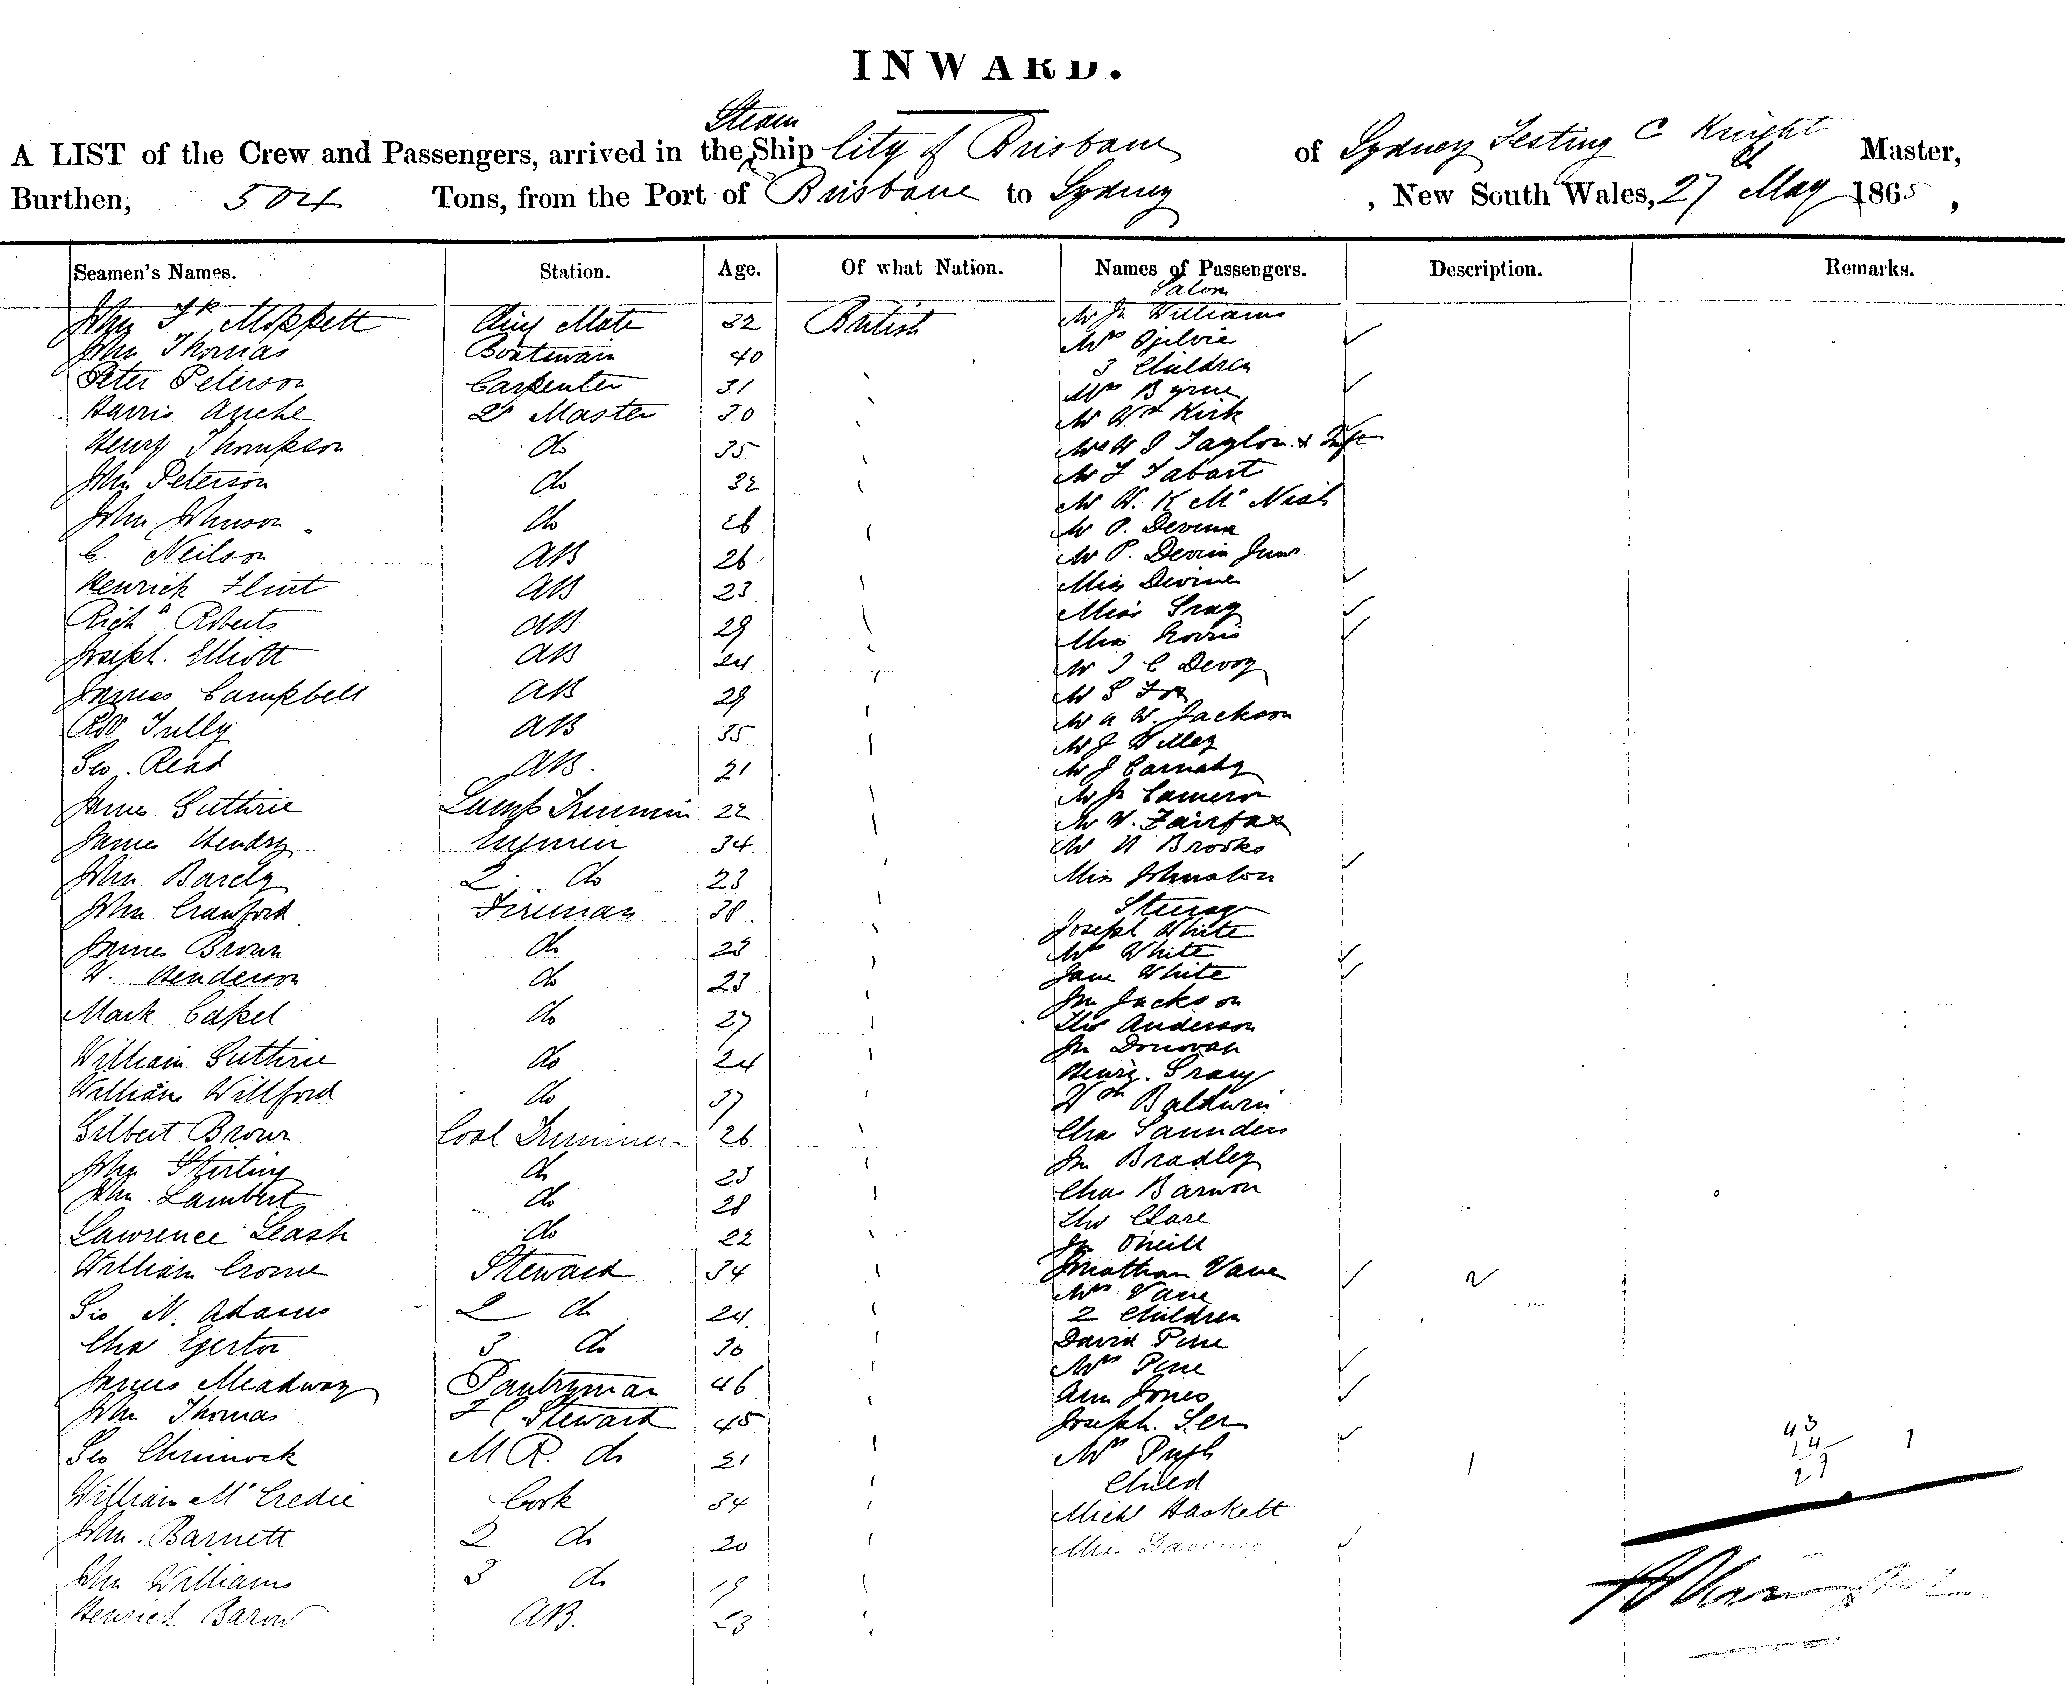 INWARD.
Steam
A LIST of the Crew and Passengers, arrived in the Ship City of Brisbane of Sydney C Knight Master,
Burthen, 504 Tons, from the Port of Brisbane to Sydney, New South Wales, 27 May 1865,
Seamen's Names. Station. Age. Of what Nation. Names of Passengers. Description. Remarks.
Salon
Moppett Chief Mate 32 British Mr Jn Williams
John Thomas Boatswain 40 Mrs Ogilvie
3 Children
Peter Peterson Carpenter 31 Mrs Byrne
Harris 2r Master 30 Mr Wm Kirk
Henry Thompson do 35 Taylor &
John Peterson do 32 Mr Tabart
Mr W. K Mc
John Johnson do 26 Mr P.
C. Neilson AB 26 Mr P. Junr
Henrick Flint AB 23 Miss Devine
Richd Roberts AB 29 Miss
Miss Norris
Joseph Elliott AB 24 Mr Devoy
James Campbell AB 29 Mr S Fox
Tully AB 35 Mr A W. Jackson
Mr J Willey
Geo. Read AB 21 Mr J Carnaby
James Guthrie Lamp Trimmer 22 Mr Jn Cameron
Mr W. Fairfax
James Hendry 34 Mr Brooks
John 2 do 23 Miss Johnston
John Crawford Fireman 38 Steerage
Joseph White
James Brown do 23 Mrs White
W. Henderson do 23 Jane White
Jn Jackson
Mark Capel do 27 Thos Anderson
Jn Donovan
William Guthrie do 24 Henry
William Willford do 37 Wm Baldwin
Gilbert Brown Coal Trimmer 26 Chas Saunders
John Stirling do 23 Jn Bradley
John Lambert do 28 Chas
Thos Clare
Lawrence Leash do 22 Jn Oneill
William Crome Steward 34 Jonathan Vane 2
Mrs Vane
Geo N. Adams 2 do 24 2 Children
Chas Egerton 3 do 30 David Pine
Mrs Pine
James Meadway Pantryman 46 Ann Jones
John Thomas F C Steward 45 Joseph
Geo Chrimock M R. do 21 Mrs Pugh 1
Child
William McCredie Cook 34 Michl Haskett
John Barnett 2 do 20 Miss
John Williams 3 do 19
Henrich Baron AB. 23
43
14
29
1